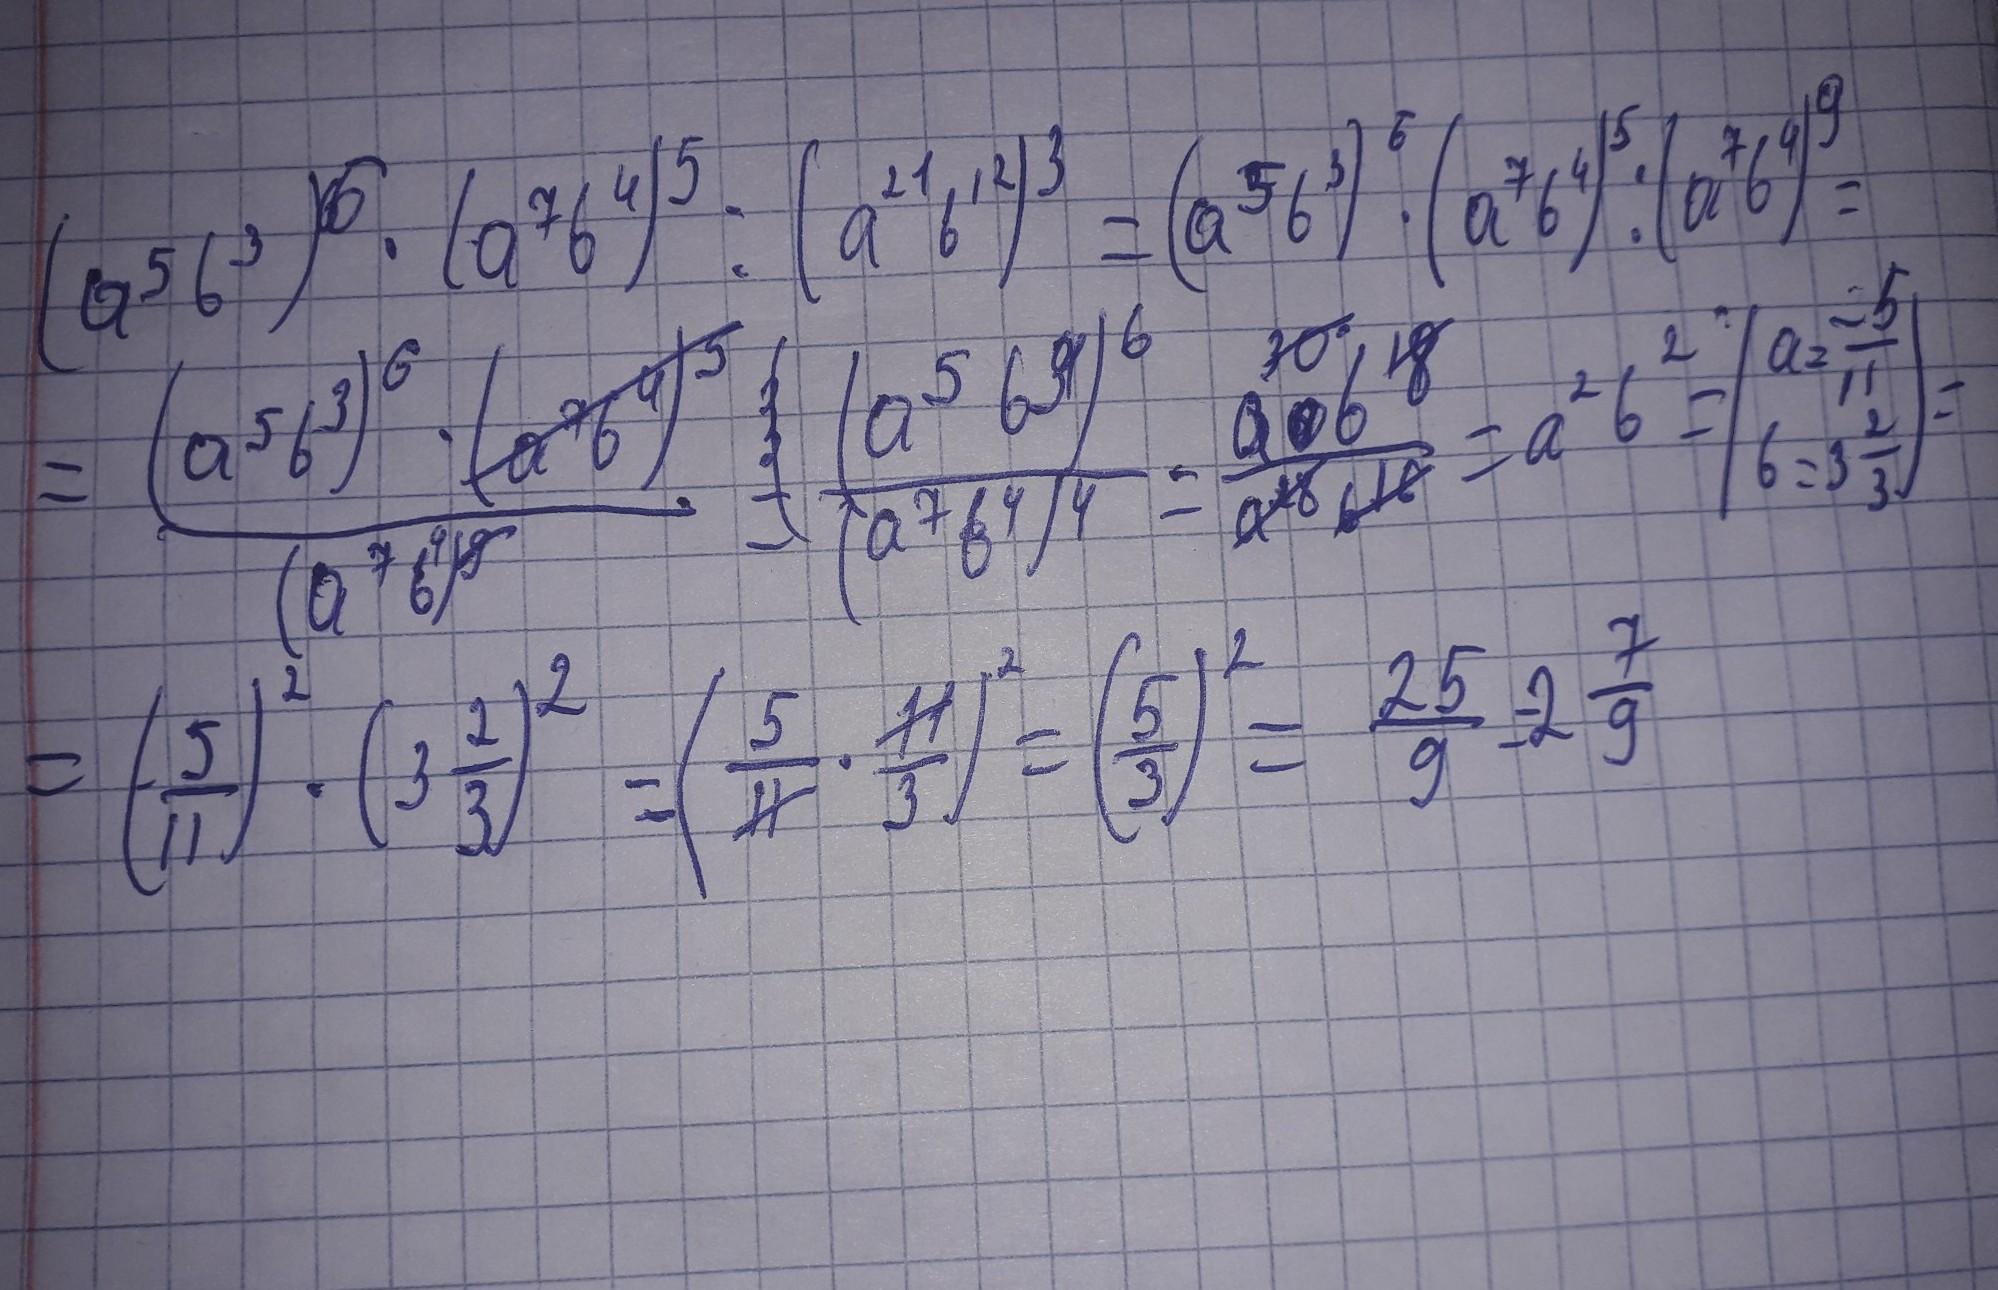 (a⁵b³)⁶ · (a⁷b⁴)⁵ : (a²¹b¹²)³ = (a⁵b³)⁶ · (a⁷b⁴)⁵ : (a⁷b⁴)⁹ =
= (a⁵b³)⁶ · (a⁷b⁴)⁵ / (a⁷b⁴)⁹ = (a⁵b³)⁶ / (a⁷b⁴)⁴ = a³⁰b¹⁸ / a²⁸b¹⁶ = a²b² = | a = -5/11 b = 3 2/3 | =
= (-5/11)² · (3 2/3)² = (5/11 · 11/3)² = (5/3)² = 25/9 = 2 7/9